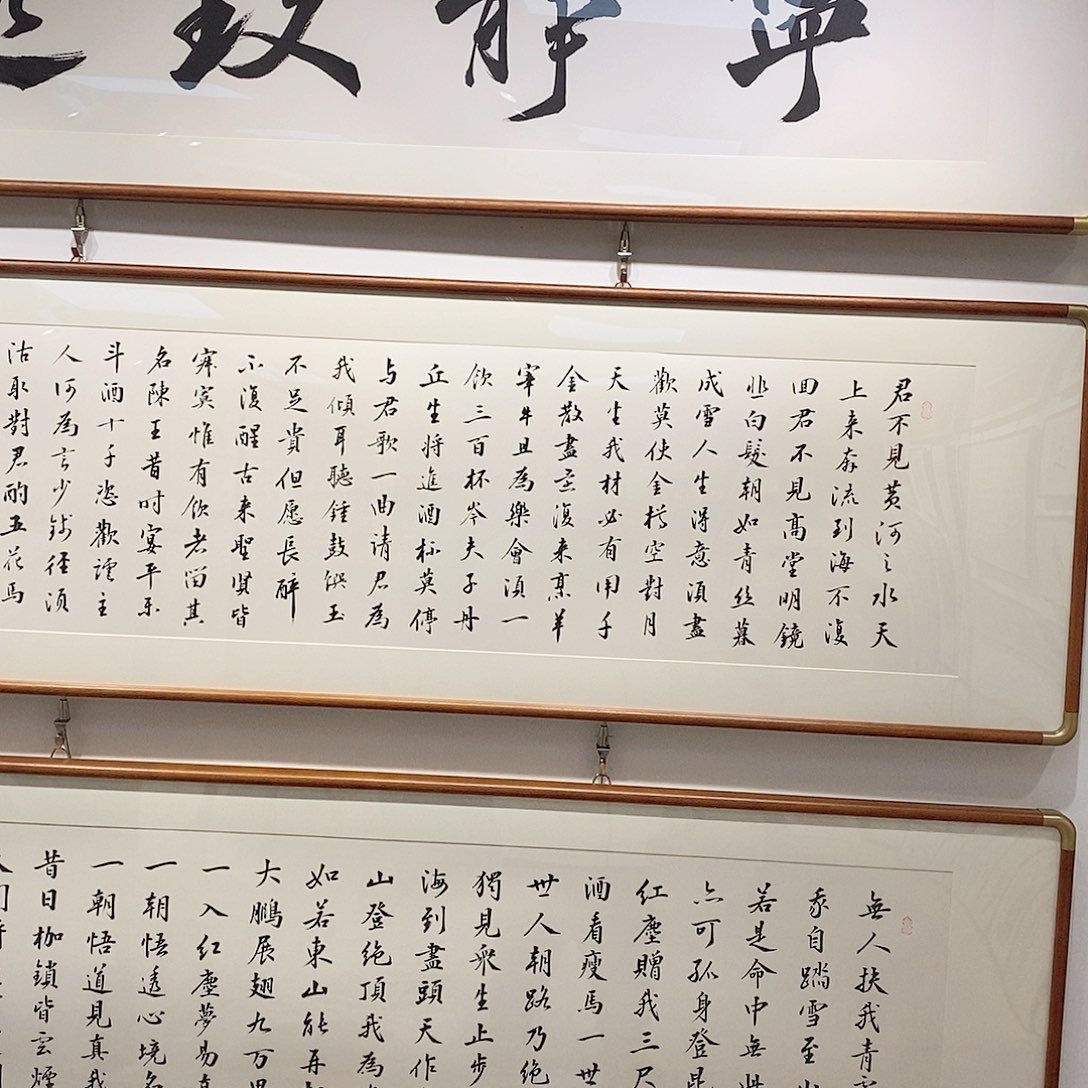 寧靜致
君不見黄河之水天
上来奔流到海不復
回君不見高堂明鏡
悲白髮朝如青丝暮
成雪人生得意湏盡
歡莫使金樽空對月
天生我材必有用千
金散盡还復来烹羊
宰牛且為樂會湏一
飲三百杯岑夫子丹
丘生将進酒杯莫停
与君歌一曲请君為
我傾耳聽鍾鼓饌玉
不足貴但愿長醉
不復醒古来聖贤皆
寂寞惟有飲者留其
名陳王昔时宴平乐
斗酒十千恣歡謔主
人何為言少錢径湏
沽取對君酌五花馬
無人扶我青
我自踏雪至山
若是命中無此
亦可孤身登昆
红塵贈我三尺
酒看瘦馬一世
世人朝路乃绝
獨見衆生止步
海到盡頭天作
山登绝頂我為
如若東山能再
大鵬展翅九万里
一入红塵夢易真
一朝悟透心境
一朝悟道見真我
昔日枷鎖皆雲煙